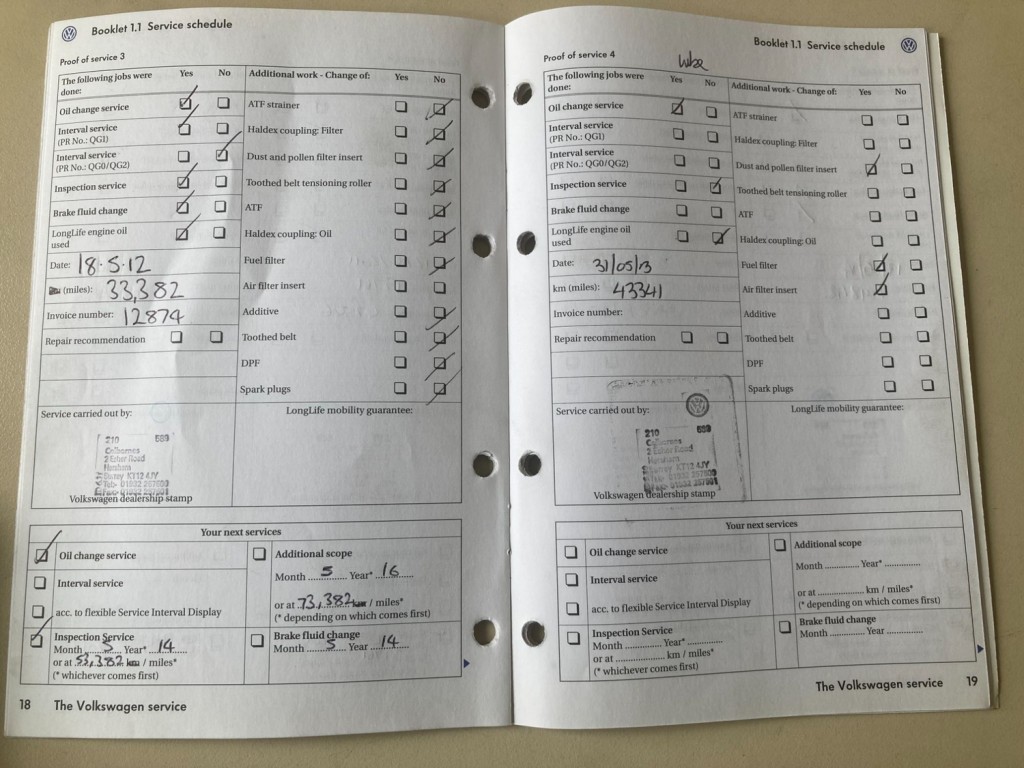 Booklet 1.1 Service schedule
Proof of service 3
The following jobs were done:
Yes No
Additional work - Change of:
Yes No
Oil change service
ATF strainer
Interval service
(PR No.: QG1)
Haldex coupling: Filter
Interval service
(PR No.: QG0/QG2)
Dust and pollen filter insert
Inspection service
Toothed belt tensioning roller
Brake fluid change
ATF
LongLife engine oil
used
Haldex coupling: Oil
Date: 18.5.12
Fuel filter
(miles): 33,382
Air filter insert
Invoice number: 12874
Additive
Repair recommendation
Toothed belt
DPF
Spark plugs
Service carried out by:
LongLife mobility guarantee:
210
2 Esher Road
Hersham
KT12 4JY
Volkswagen dealership stamp
Your next services
Oil change service
Additional scope
Month 5 Year* 16
Interval service
or at 73,382 km / miles*
(* depending on which comes first)
acc. to flexible Service Interval Display
Inspection Service
Month 5 Year* 14
or at 53,382 km / miles*
(* whichever comes first)
Brake fluid change
Month 5 Year 14
18 The Volkswagen service
Booklet 1.1 Service schedule
Proof of service 4
The following jobs were
done:
Yes No
Additional work - Change of:
Yes No
Oil change service
ATF strainer
Interval service
(PR No.: QG1)
Haldex coupling: Filter
Interval service
(PR No.: QG0/QG2)
Dust and pollen filter insert
Inspection service
Toothed belt tensioning roller
Brake fluid change
ATF
LongLife engine oil
used
Haldex coupling: Oil
Date: 31/05/13
Fuel filter
km (miles): 43341
Air filter insert
Invoice number:
Additive
Repair recommendation
Toothed belt
DPF
Spark plugs
Service carried out by:
LongLife mobility guarantee:
210
2 Esher Road
Hersham
Surrey KT12 4JY
Volkswagen dealership stamp
Your next services
Oil change service
Additional scope
Month Year*
Interval service
or at km / miles*
(* depending on which comes first)
acc. to flexible Service Interval Display
Inspection Service
Month Year*
or at km / miles*
(* whichever comes first)
Brake fluid change
Month Year
The Volkswagen service 19